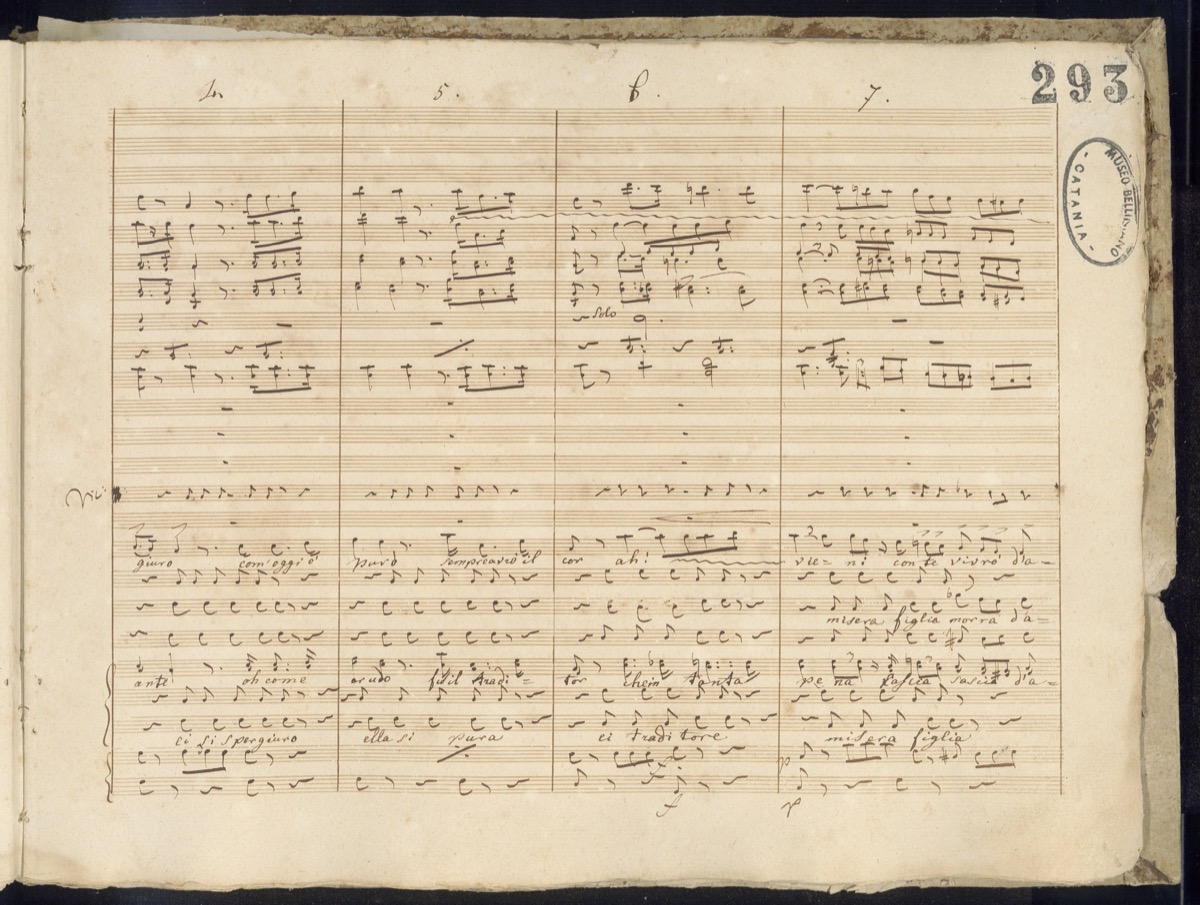 293
4. 5. 6. 7.
MUSEO BELLINIANO
- CATANIA -
Solo
giuro com'oggi è puro sempre avrò il cor ah! vie = ni con te vivrò d'a =
misera figlia morrà d'a =
ante oh come crudo fu il tradi = tor che in tanta pena lascia lascia d'a =
ei sì spergiuro ella sì pura ei traditore misera figlia
p
f p